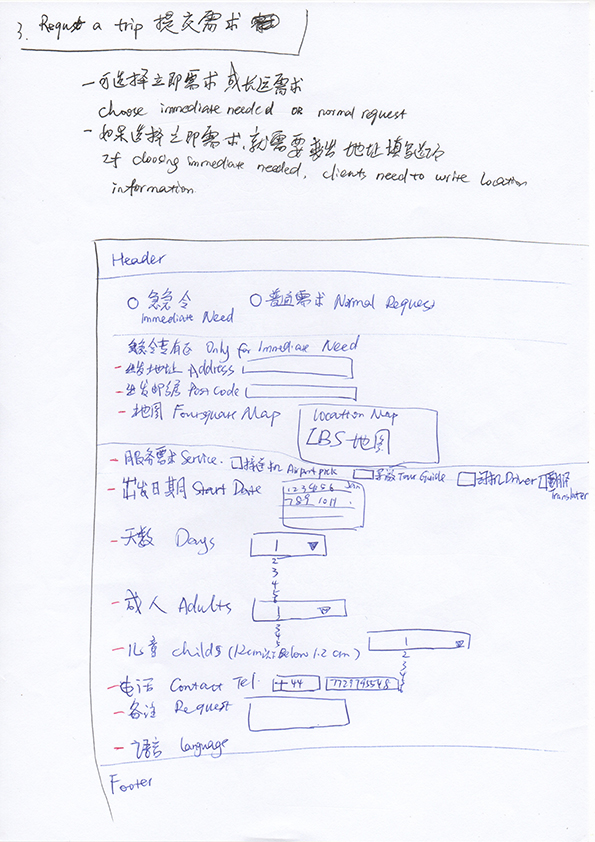 3. Requst a trip 提交需求
一可选择立即需求 或长远需求
choose immediate needed OR normal request
一如果选择立即需求,就需要 地址填写
If choosing immediate needed, clients need to write location
information
Header
急急令 普通需求 Normal Request
Immediate Need
急急令专有区 Only for Immediate Need
- 出发地址 Address
- 出发邮编 Post Code
- 地图 Foursquare Map
Location Map
LBS 地图
- 服务需求 Service. 接送机 Airport pick 导游 Tour Guide 司机 Driver 翻译
Translater
- 出发日期 Start Date
1 2 3 4 5 6
7 8 9 10 11
- 天数 Days 1
2
3
4
5
- 成人 Adults 1
2
3
4
5
- 儿童 childs (1.2cm以下 Below 1.2 cm) 1
2
3
4
5
- 电话 Contact Tel. +44 7729745548
- 备注 Request
- 语言 language
Footer